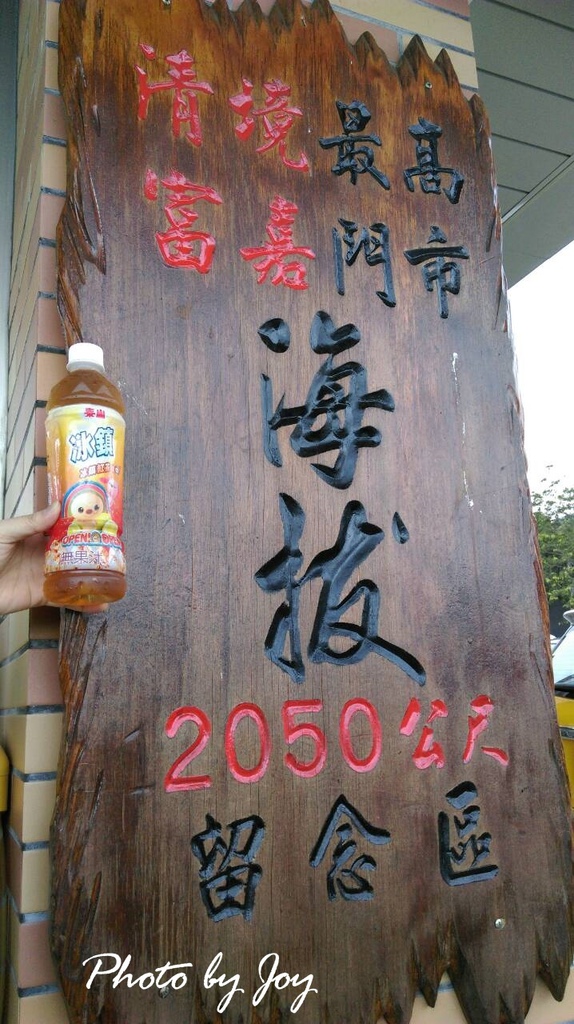 清境 最高
富嘉 門市
海拔
2050公尺
留念區
泰山
冰鎮
OPEN!
無果汁
Photo by Joy